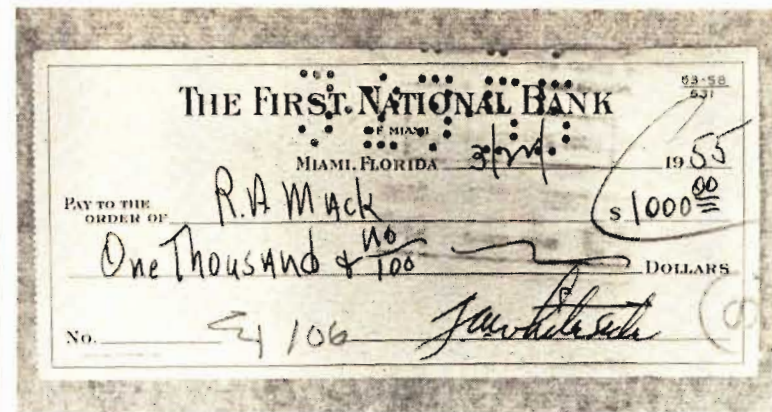 THE FIRST NATIONAL BANK
OF MIAMI
53-58
631
MIAMI, FLORIDA 1955
PAY TO THE
ORDER OF R.A Mack $1000 00
One Thousand & no/100 DOLLARS
No. 106